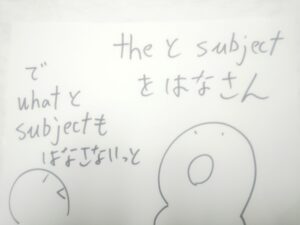 the と subject
をはなさん
で
what と
subjectも
はなさないっと